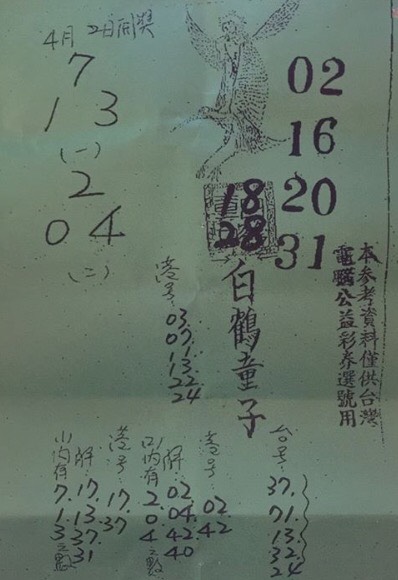 4月2日開獎
7
1 3
(一)
2
0 4
(二)
02
16
18 20
28 31
白鶴童子
本參考資料僅供台灣
電腦公益彩券選號用
港号:
03.
07.
13.
22.
24
台号:
37.
71.
13.
32.
24
港号:
02.
42
解:
02.
04.
42.
40
(二)内有
2.
0.
4之點
港号:
17.
37
解:
17.
13.
37.
31
(一)内有
7.
1.
3之點